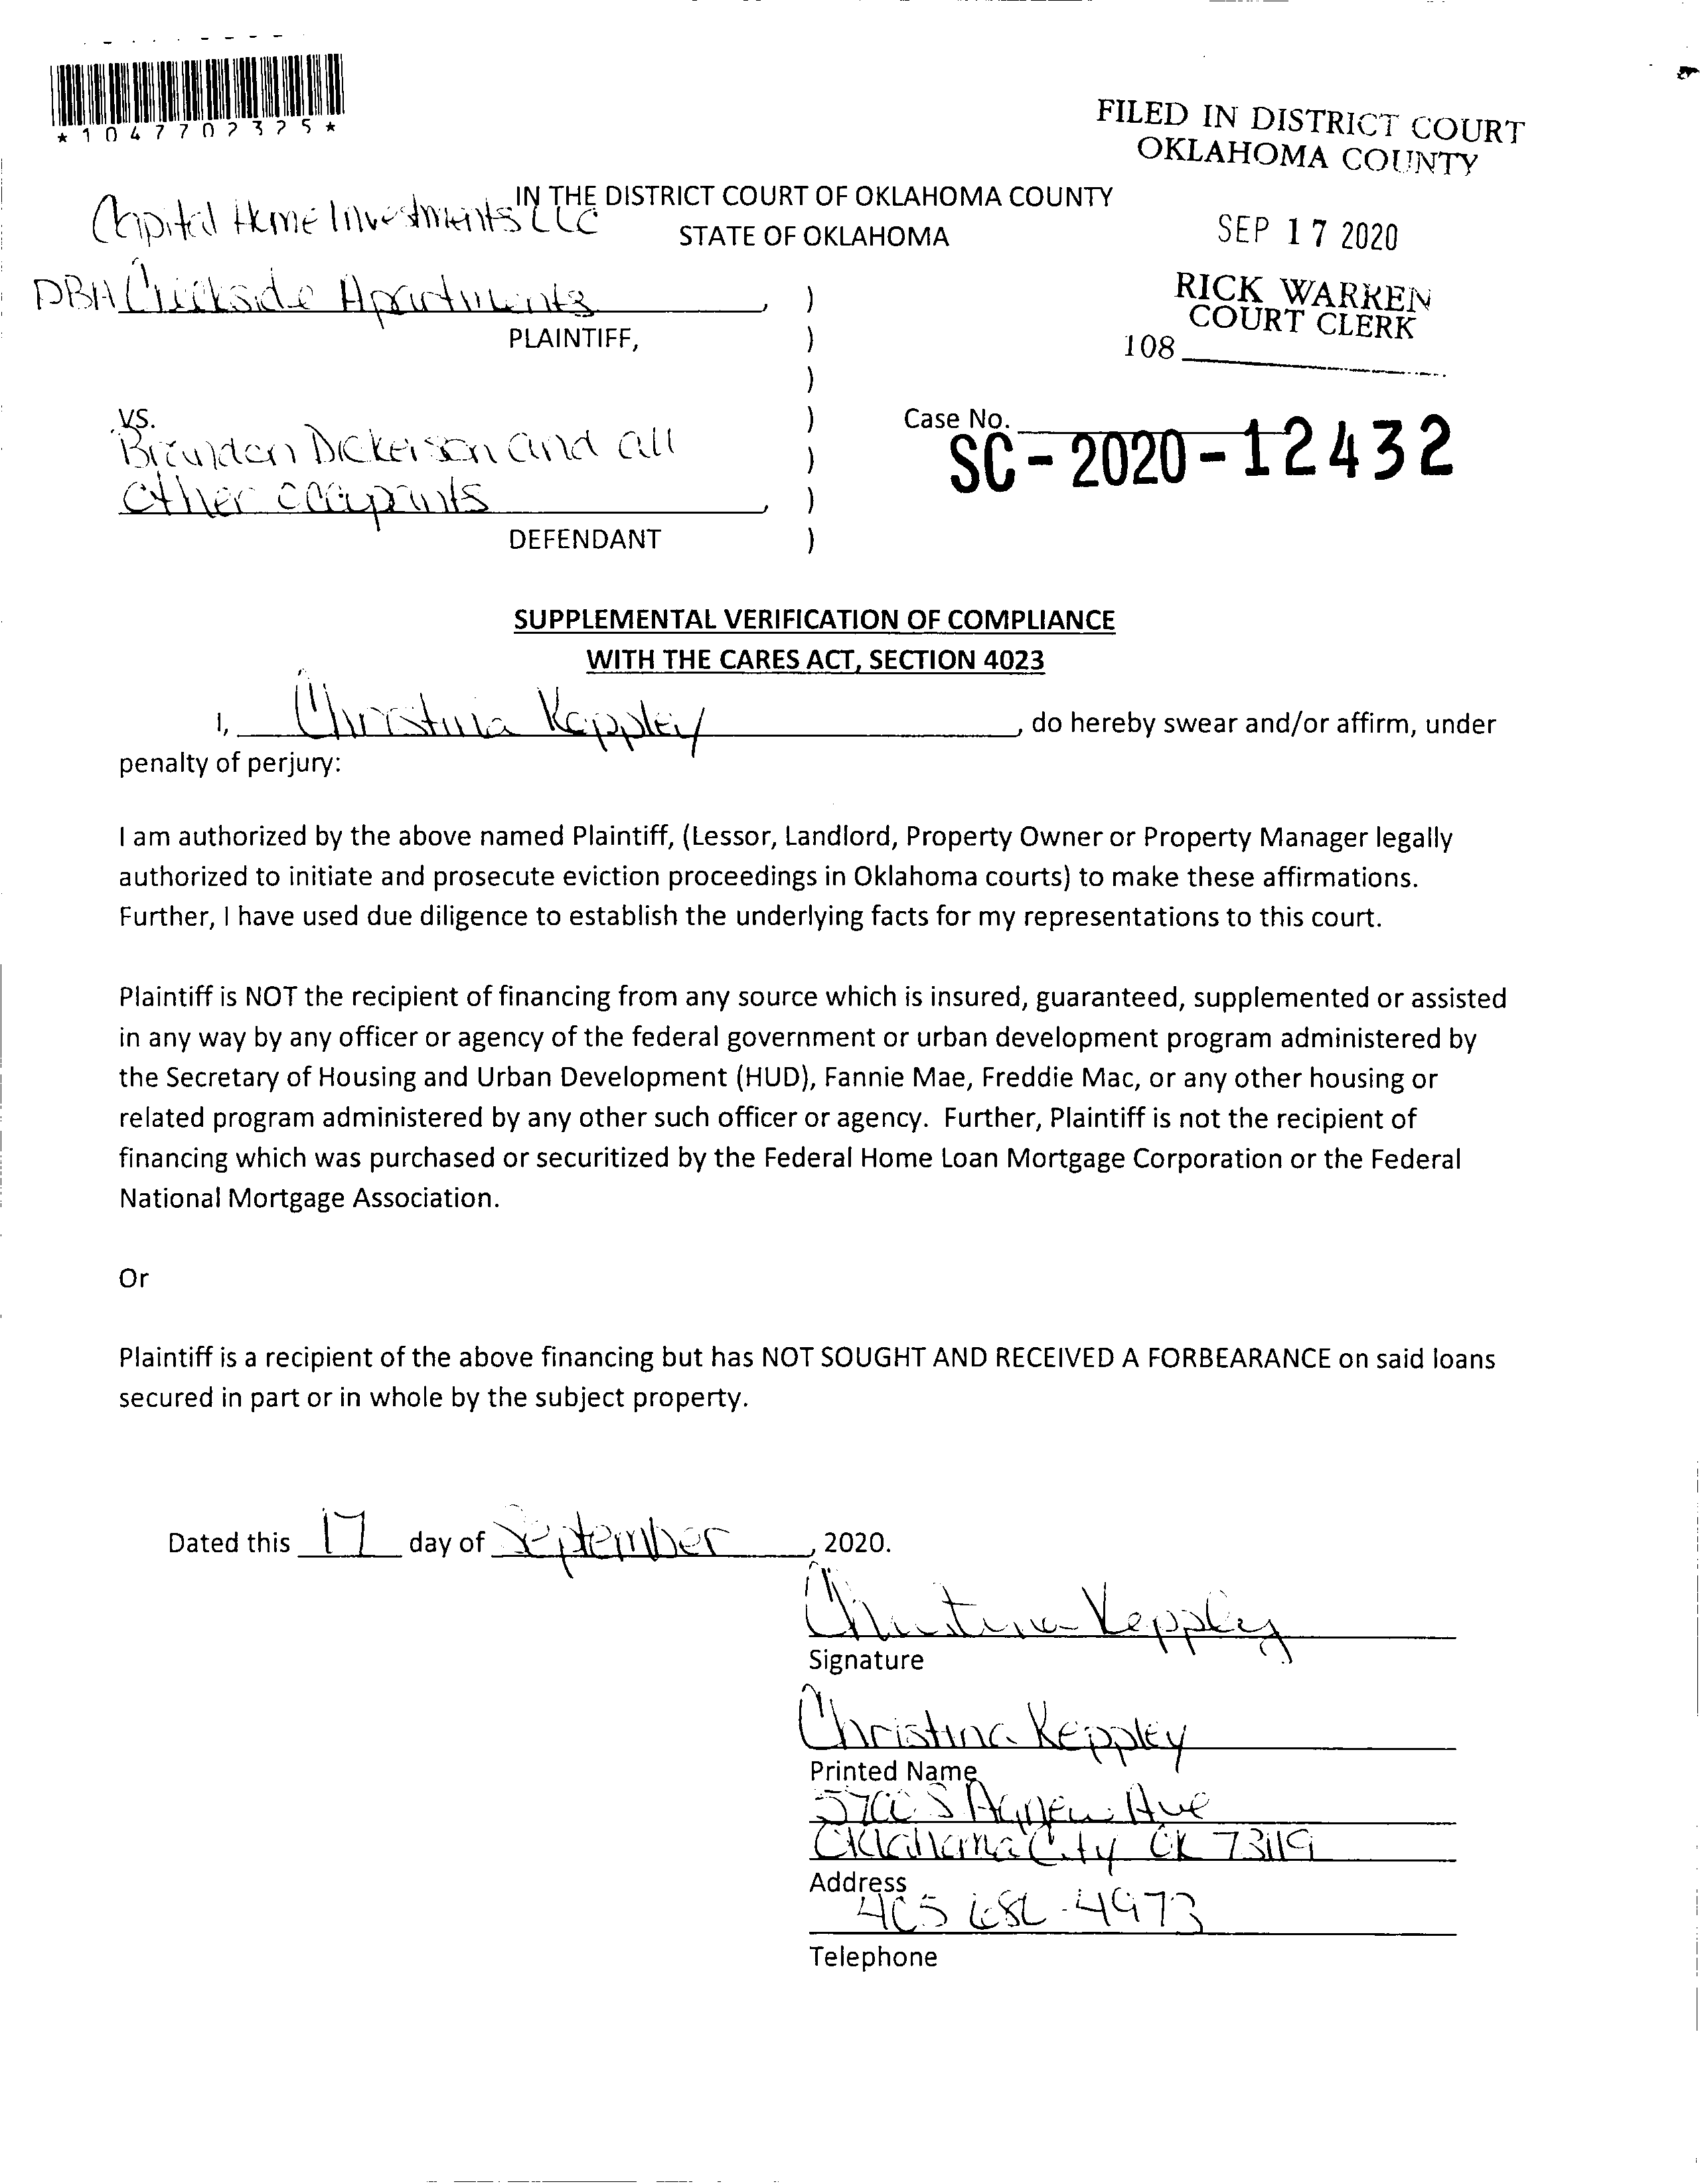 *1047702325*
FILED IN DISTRICT COURT
OKLAHOMA COUNTY
IN THE DISTRICT COURT OF OKLAHOMA COUNTY
Capital Home Investments LLC
STATE OF OKLAHOMA
SEP 17 2020
DBA Creekside Apartments, )
RICK WARREN
COURT CLERK
PLAINTIFF, )
108
)
VS. )
Case No.
SC-2020-12432
Brandon Dickerson and all )
other occupants, )
DEFENDANT )
SUPPLEMENTAL VERIFICATION OF COMPLIANCE
WITH THE CARES ACT, SECTION 4023
I, Christina Keppley, do hereby swear and/or affirm, under
penalty of perjury:
I am authorized by the above named Plaintiff, (Lessor, Landlord, Property Owner or Property Manager legally
authorized to initiate and prosecute eviction proceedings in Oklahoma courts) to make these affirmations.
Further, I have used due diligence to establish the underlying facts for my representations to this court.
Plaintiff is NOT the recipient of financing from any source which is insured, guaranteed, supplemented or assisted
in any way by any officer or agency of the federal government or urban development program administered by
the Secretary of Housing and Urban Development (HUD), Fannie Mae, Freddie Mac, or any other housing or
related program administered by any other such officer or agency. Further, Plaintiff is not the recipient of
financing which was purchased or securitized by the Federal Home Loan Mortgage Corporation or the Federal
National Mortgage Association.
Or
Plaintiff is a recipient of the above financing but has NOT SOUGHT AND RECEIVED A FORBEARANCE on said loans
secured in part or in whole by the subject property.
Dated this 17 day of September, 2020.
Christina Keppley
Signature
Christina Keppley
Printed Name
5700 S Agnew Ave
Oklahoma City OK 73119
Address
405 -4973
Telephone